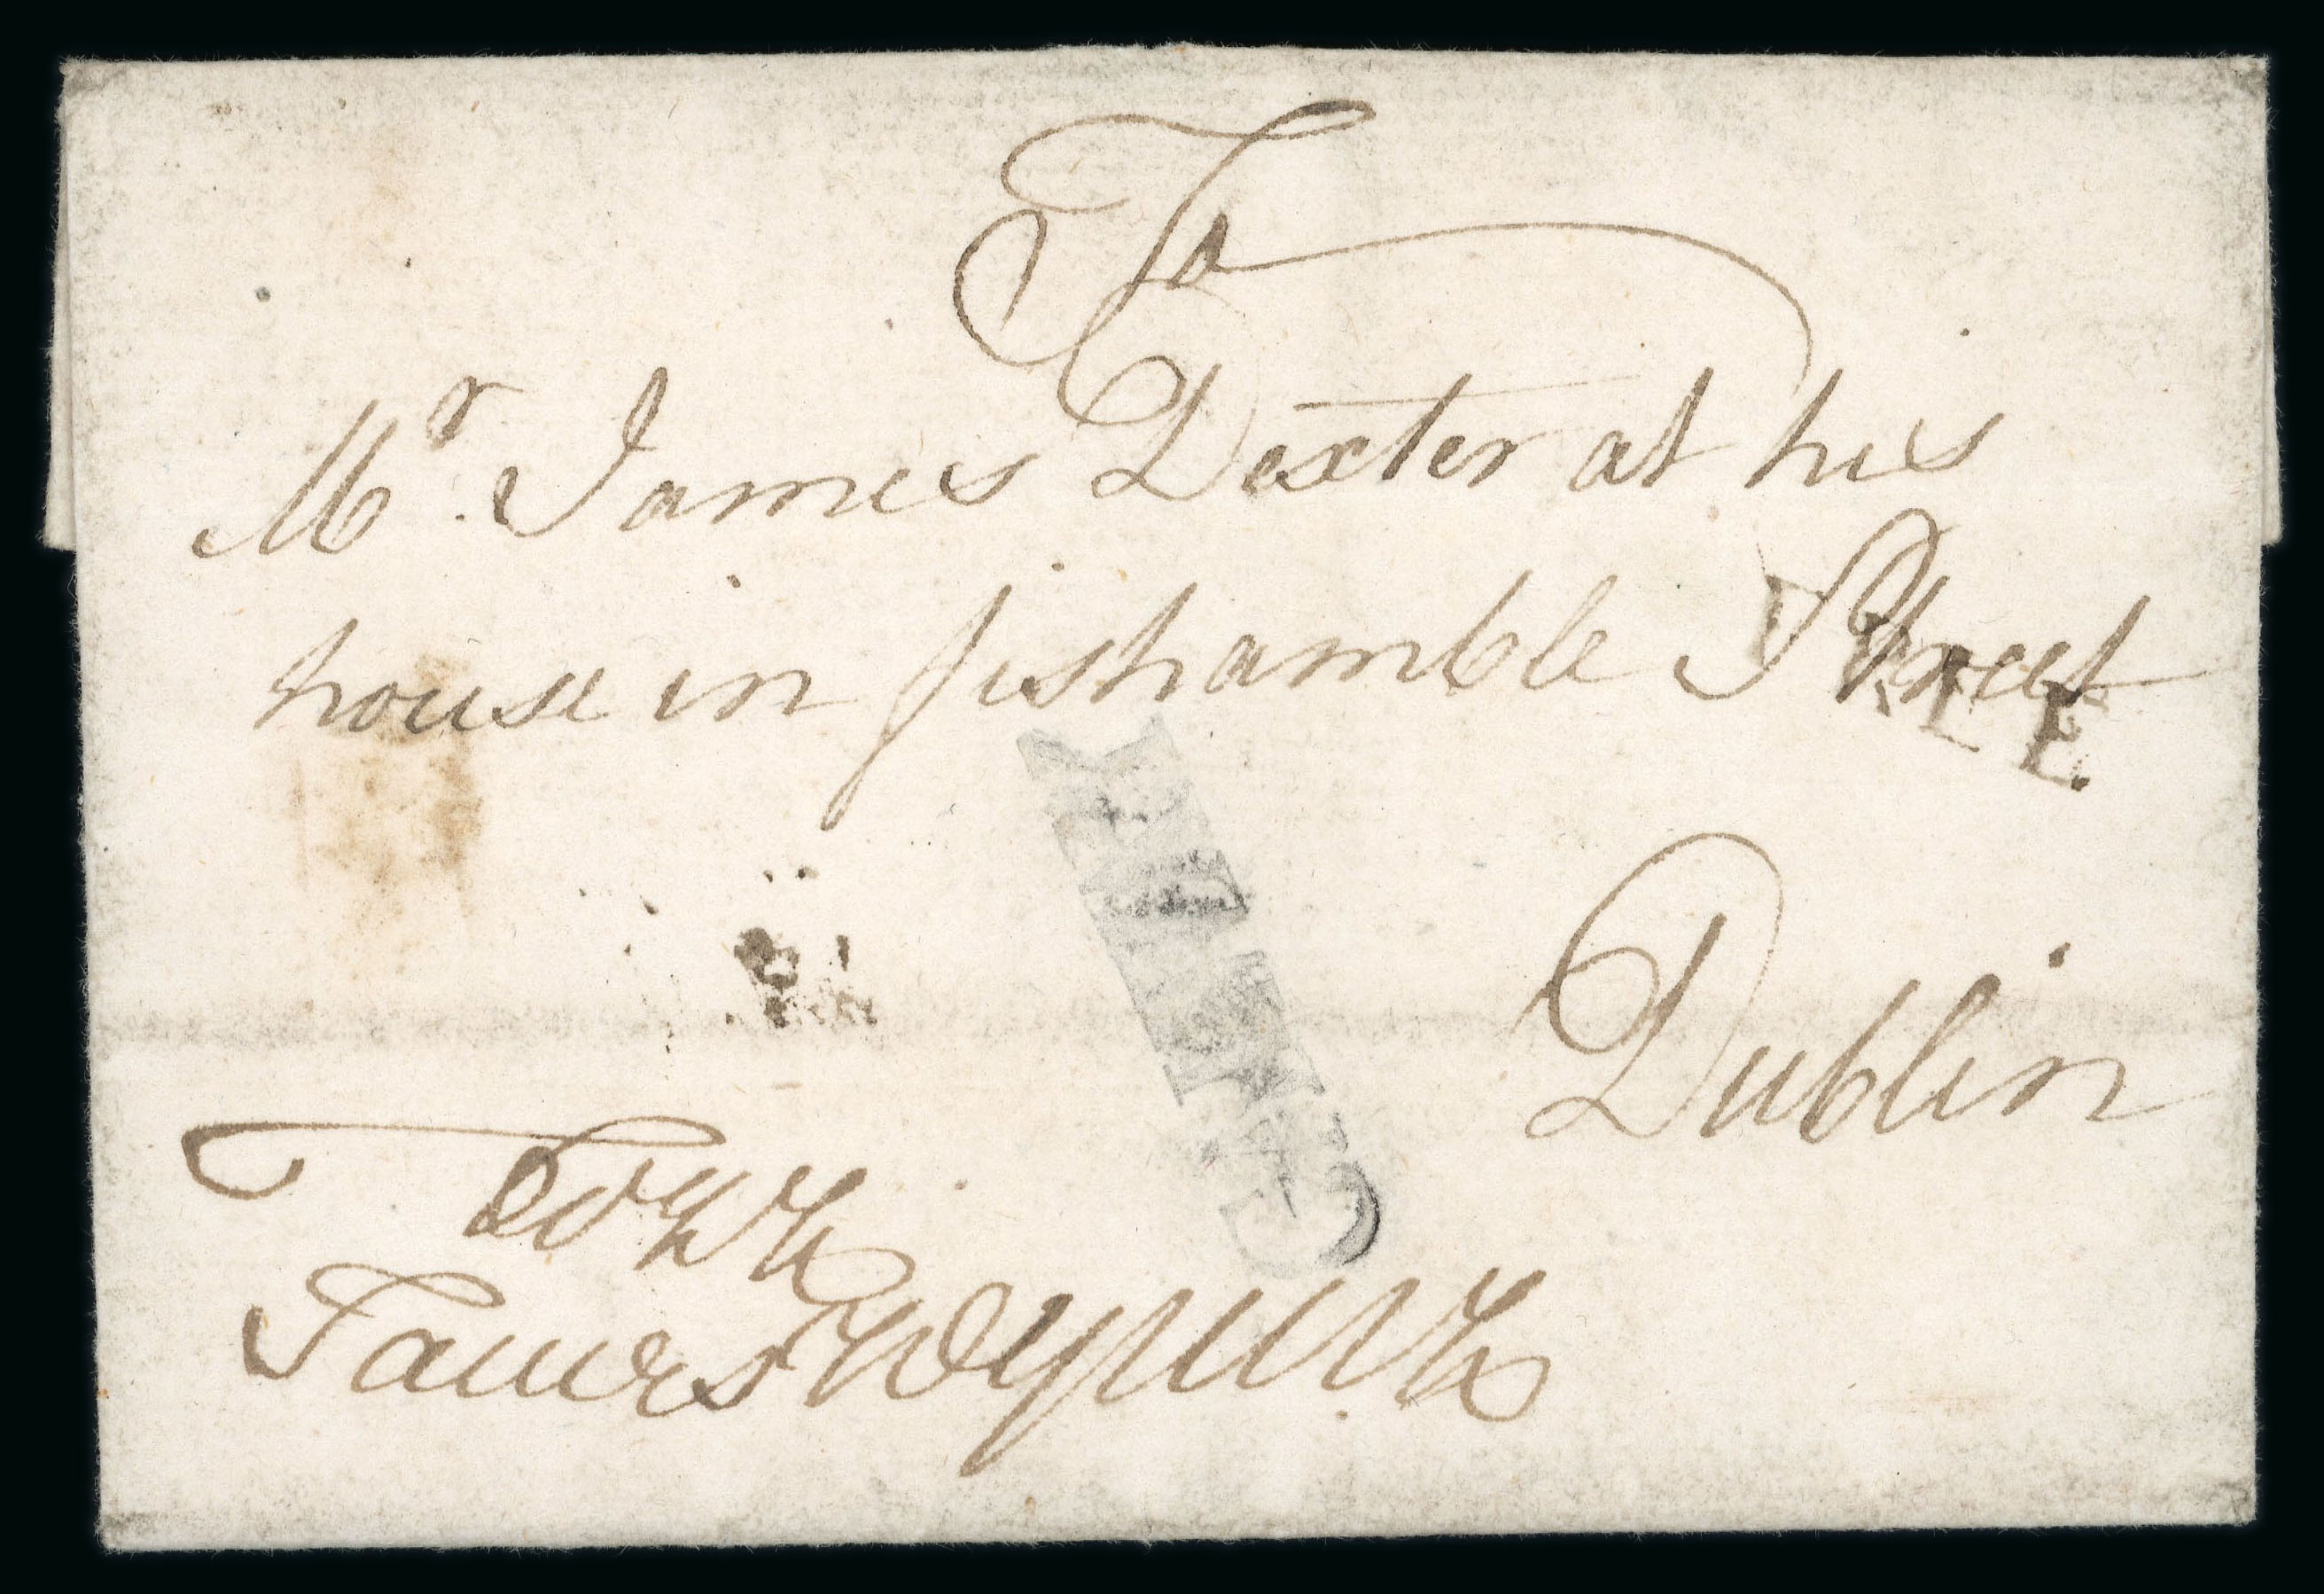 To
Mr. James Dexter at his
house in fishamble Street
FREE
Dublin
James